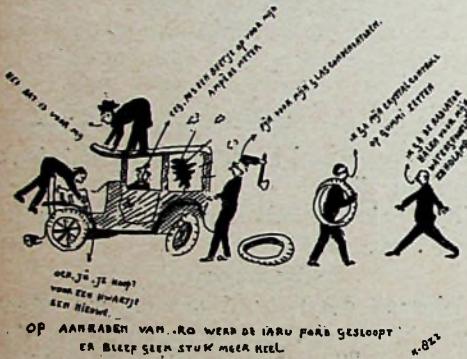 HEE DAT IS VOOR MIJ
EEN BEETJE OP VOOR MIJN
AMPÈRE METER
FIJN VOOR MIJN GLAS CONDENSATOREN.
IK GA MIJN CRYSTAL CONTROLL
OP GUMMI ZETTEN
IK GA DE RADIATOR
VOOR MIJN
JE KOOPT
VOOR EEN KWARTJE
EEN NIEUWE.
OP AANRADEN VAN..RO WERD DE IARU FORD GESLOOPT
ER BLEEF GEEN STUK MEER HEEL